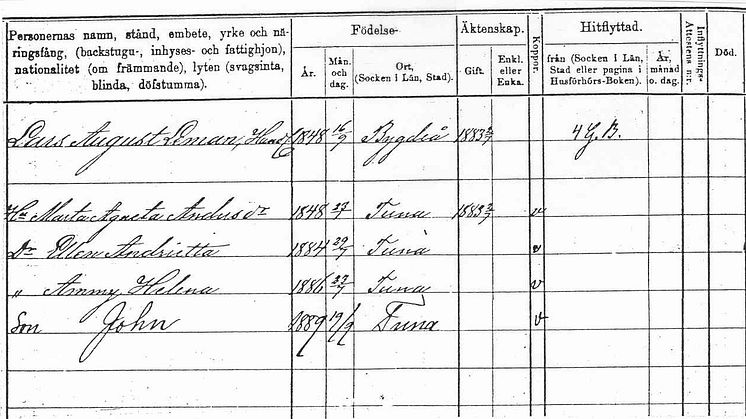 Personernas namn, stånd, embete, yrke och nä-
ringsfång, (backstugu-, inhyses- och fattighjon),
nationalitet (om främmande), lyten (svagsinta,
blinda, döfstumma).
Födelse-
År. Mån. och dag. Ort, (Socken i Län, Stad).
Äktenskap.
Gift. Enkl. eller Enka.
Koppor.
Hitflyttad.
från (Socken i Län, Stad eller pagina i Husförhörs-Boken). År, månad o. dag.
Inflyttnings-Attestens n:r.
Död.
Lars August Leman, 1848 16/9 Bygdeå 1883 4 G. B.
Hu Marta Agneta Andersdr 1848 Tuna 1883 v
Dr Ellen Andrietta 1884 Tuna v
" Ammy Helena 1886 Tuna v
Son John 1889 Tuna v